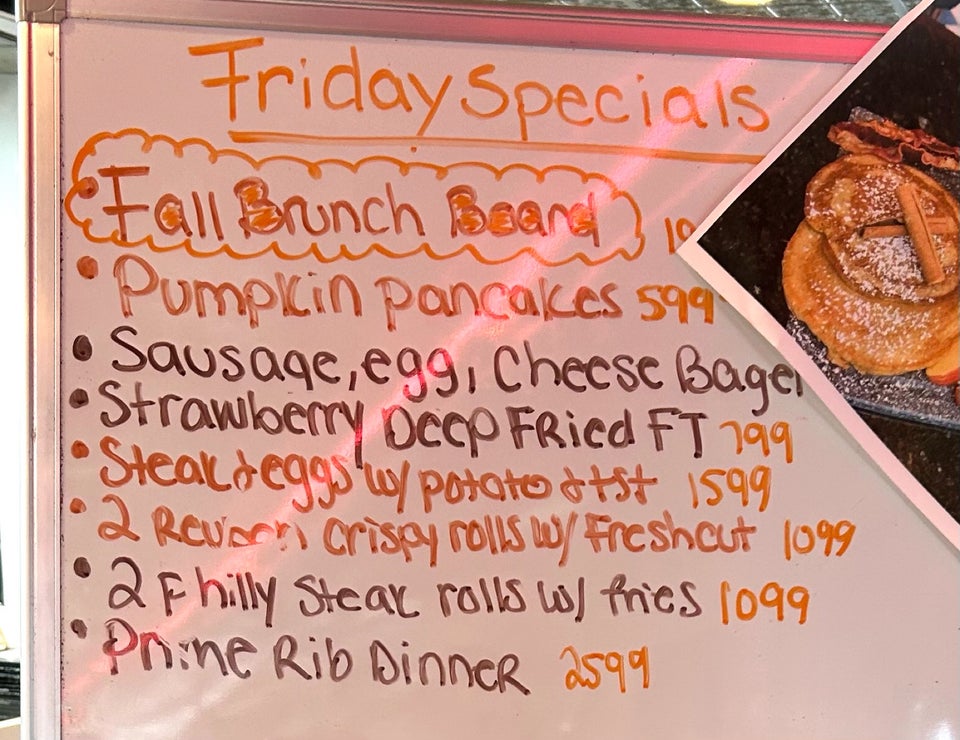 Friday Specials
• Fall Brunch Board
• Pumpkin pancakes 599
• Sausage, egg, Cheese Bagel
• Strawberry Deep FRied FT 799
• Steak & eggs w/ potato & tst 1599
• 2 Reuben crispy rolls w/ Freshcut 1099
• 2 Philly steak rolls w/ fries 1099
• Prime Rib Dinner 2599